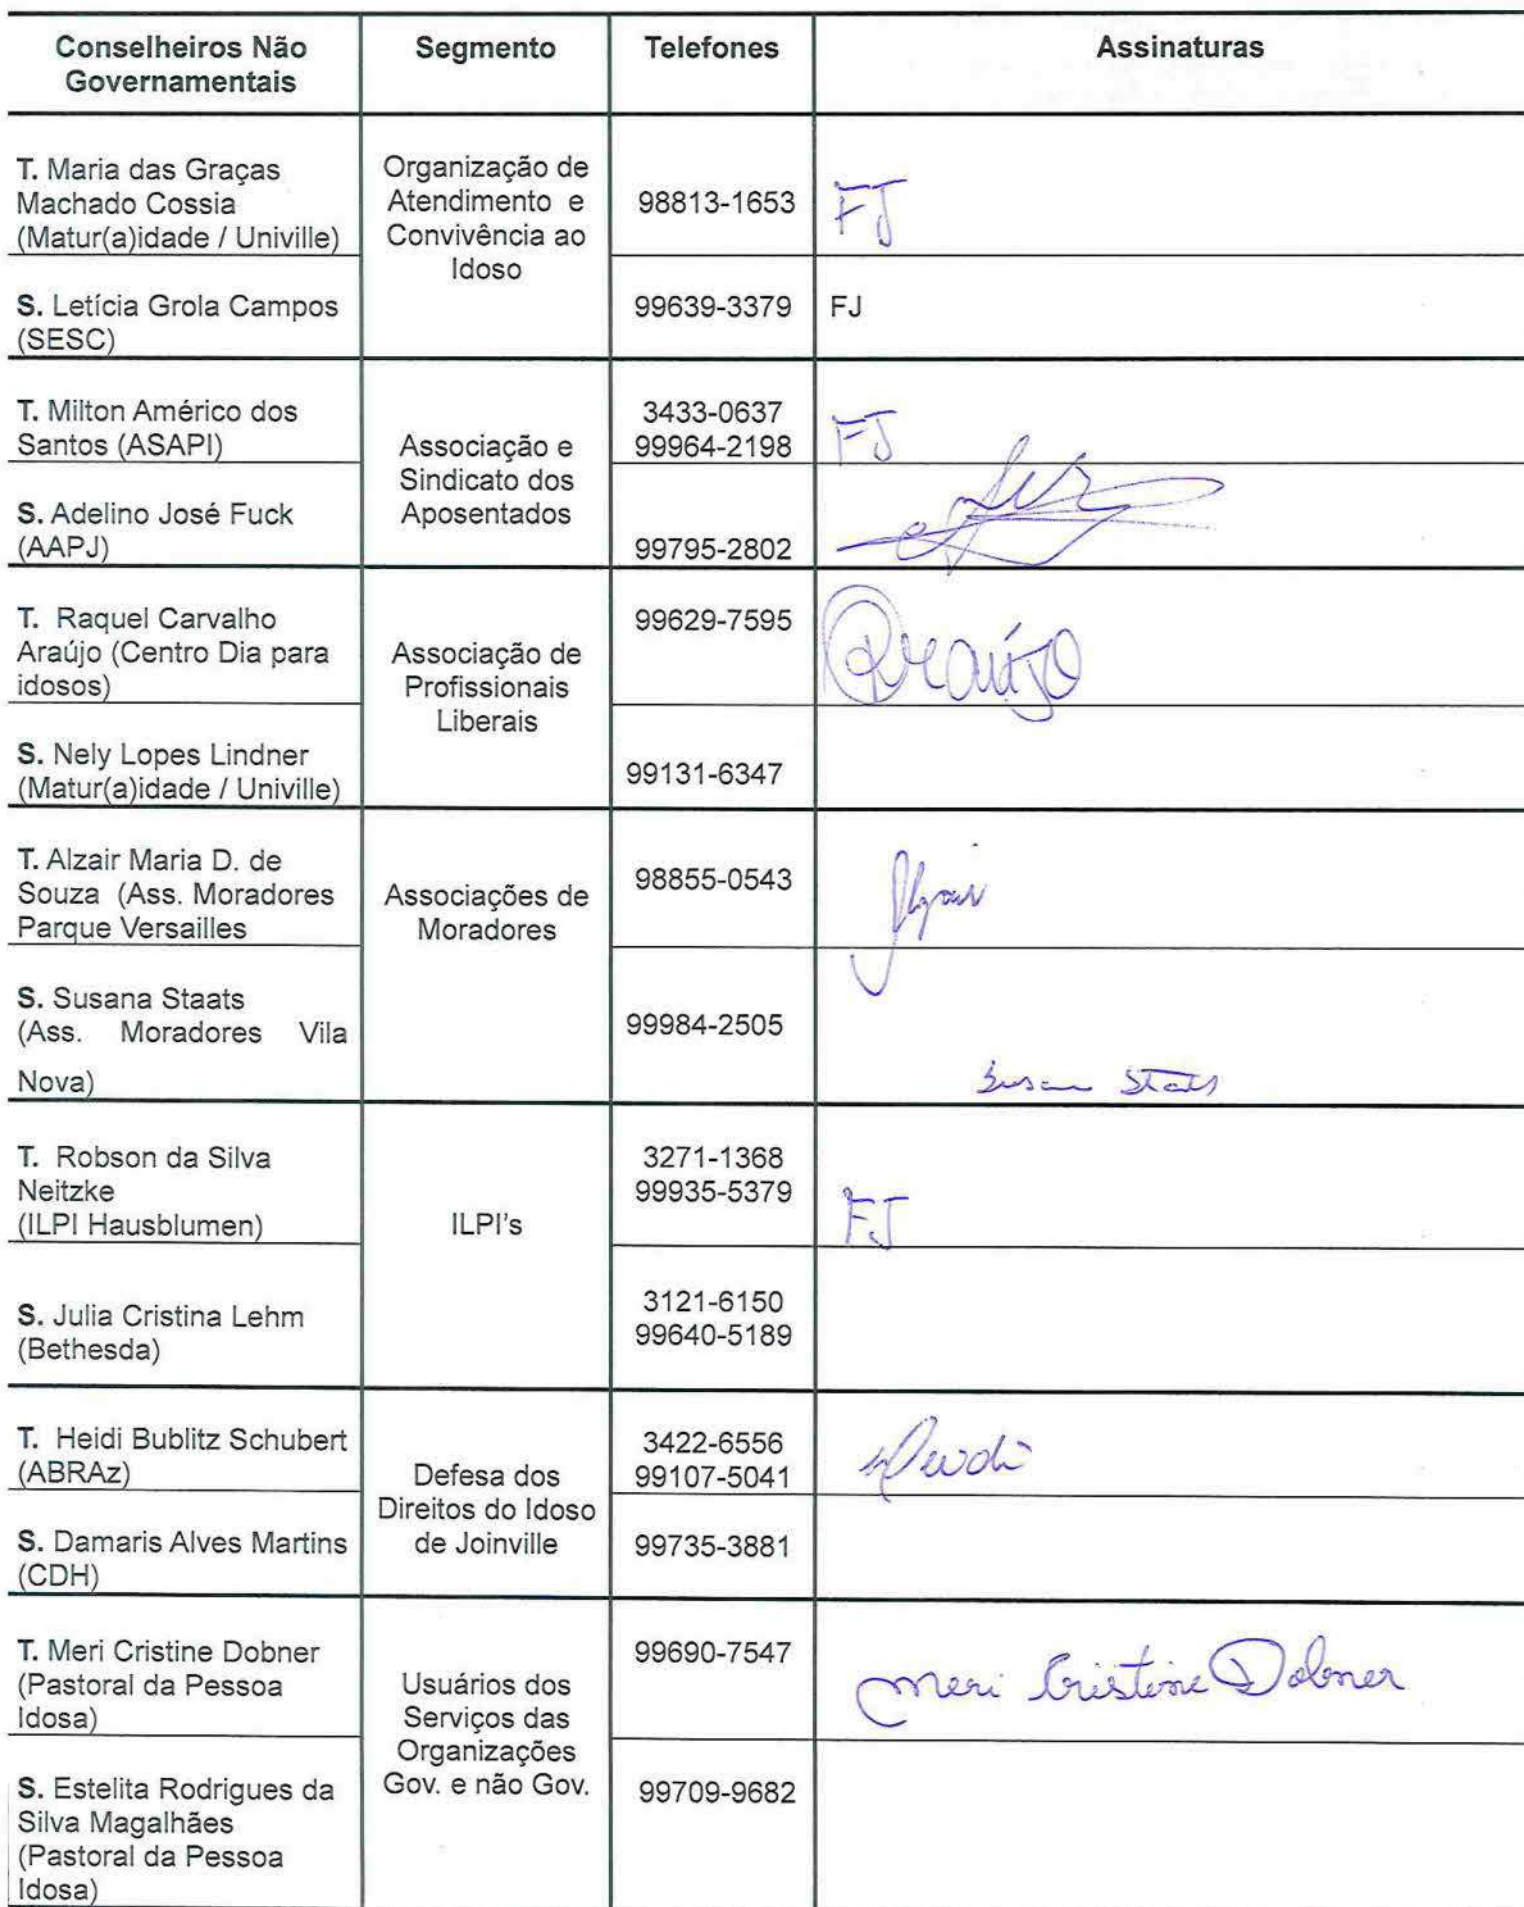 Conselheiros Não
Governamentais
Segmento
Telefones
Assinaturas
T. Maria das Graças
Machado Cossia
(Matur(a)idade / Univille)
Organização de
Atendimento e
Convivência ao
Idoso
98813-1653
FJ
S. Letícia Grola Campos
(SESC)
99639-3379
FJ
T. Milton Américo dos
Santos (ASAPI)
Associação e
Sindicato dos
Aposentados
3433-0637
99964-2198
FJ
S. Adelino José Fuck
(AAPJ)
99795-2802
T. Raquel Carvalho
Araújo (Centro Dia para
idosos)
Associação de
Profissionais
Liberais
99629-7595
Araújo
S. Nely Lopes Lindner
(Matur(a)idade / Univille)
99131-6347
T. Alzair Maria D. de
Souza (Ass. Moradores
Parque Versailles
Associações de
Moradores
98855-0543
S. Susana Staats
(Ass. Moradores Vila
Nova)
99984-2505
T. Robson da Silva
Neitzke
(ILPI Hausblumen)
ILPI's
3271-1368
99935-5379
FJ
S. Julia Cristina Lehm
(Bethesda)
3121-6150
99640-5189
T. Heidi Bublitz Schubert
(ABRAz)
Defesa dos
Direitos do Idoso
de Joinville
3422-6556
99107-5041
S. Damaris Alves Martins
(CDH)
99735-3881
T. Meri Cristine Dobner
(Pastoral da Pessoa
Idosa)
Usuários dos
Serviços das
Organizações
Gov. e não Gov.
99690-7547
Meri Cristine Dobner
S. Estelita Rodrigues da
Silva Magalhães
(Pastoral da Pessoa
Idosa)
99709-9682